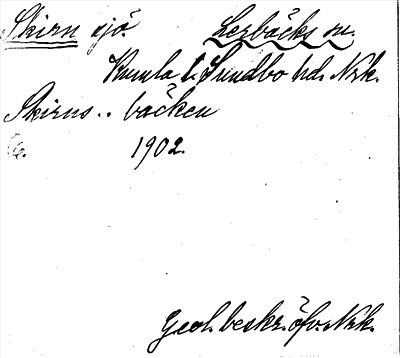 Skirn sjö. Lerbäcks sn.
Kumla t. Sundbo hd. Nrk.
Skirns.. bäcken
1902.
Geol. beskr. öfv. Nrk.